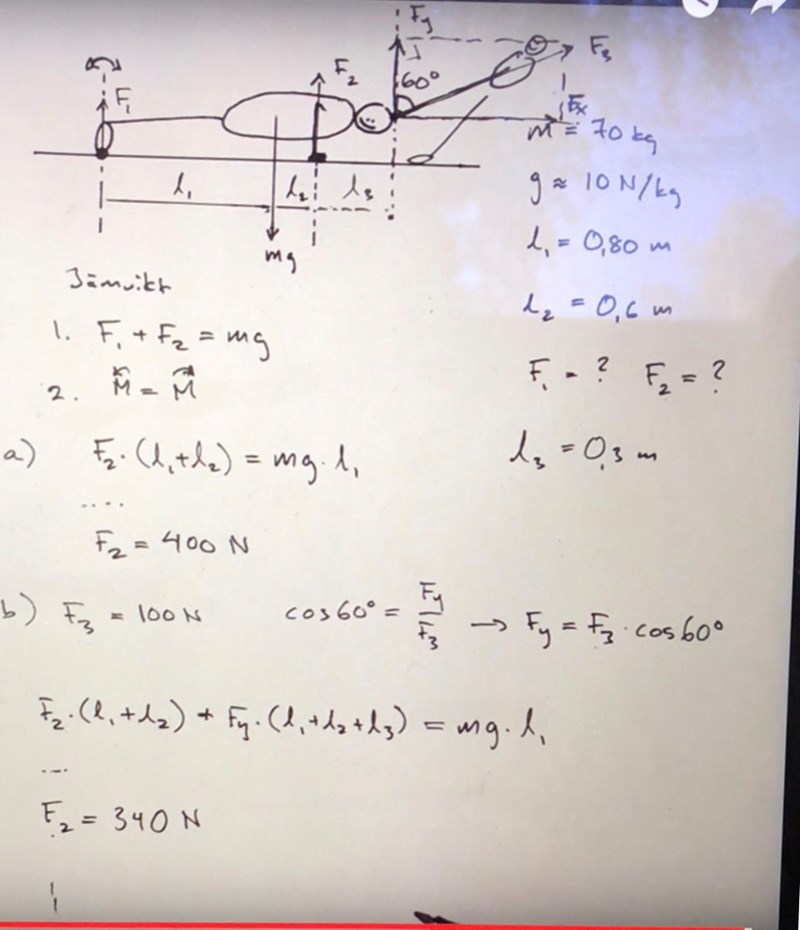 Fy
F₃
60°
F₂
F₁
Fx
m = 70 kg
l₁ l₂ l₃
g ≈ 10 N/kg
mg
l₁ = 0,80 m
Jämvikt
l₂ = 0,6 m
1. F₁ + F₂ = mg
F₁ = ? F₂ = ?
2. M↶ = M↷
a) F₂ · (l₁+l₂) = mg · l₁
l₃ = 0,3 m
....
F₂ = 400 N
b) F₃ = 100 N cos60° = Fy/F₃ → Fy = F₃ · cos60°
F₂ · (l₁+l₂) + Fy · (l₁+l₂+l₃) = mg · l₁
....
F₂ = 340 N